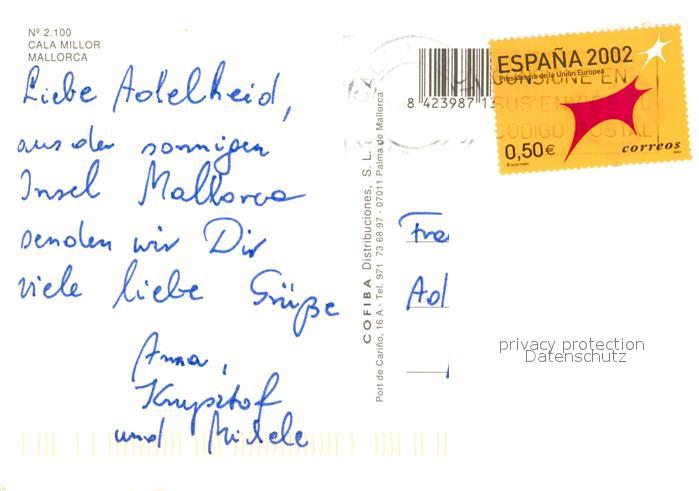 Nº 2.100
CALA MILLOR
MALLORCA
Liebe Adelheid,
aus der sonnigen
Insel Mallorca
senden wir Dir
viele liebe Grüße
Anna,
Krzysztof
und Michele
COFIBA Distribuciones, S. L.
Port de Cariño, 16 A - Tel. 971 73 68 97 - 07011 Palma de Mallorca
8 423987 1
ESPAÑA 2002
Presidencia de la Unión Europea
CONSIGNE EN
SUS ENVIOS EL
CODIGO POSTAL
0,50€
correos
Fra
Ad
privacy protection
Datenschutz